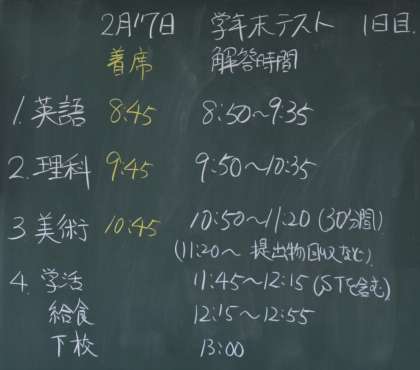 2月17日 学年末テスト 1日目.
着席 解答時間
1.英語 8:45 8:50〜9:35
2.理科 9:45 9:50〜10:35
3 美術 10:45 10:50〜11:20 (30分間)
(11:20〜 提出物回収など)
4. 学活 11:45〜12:15 (STを含む)
給食 12:15〜12:55
下校 13:00